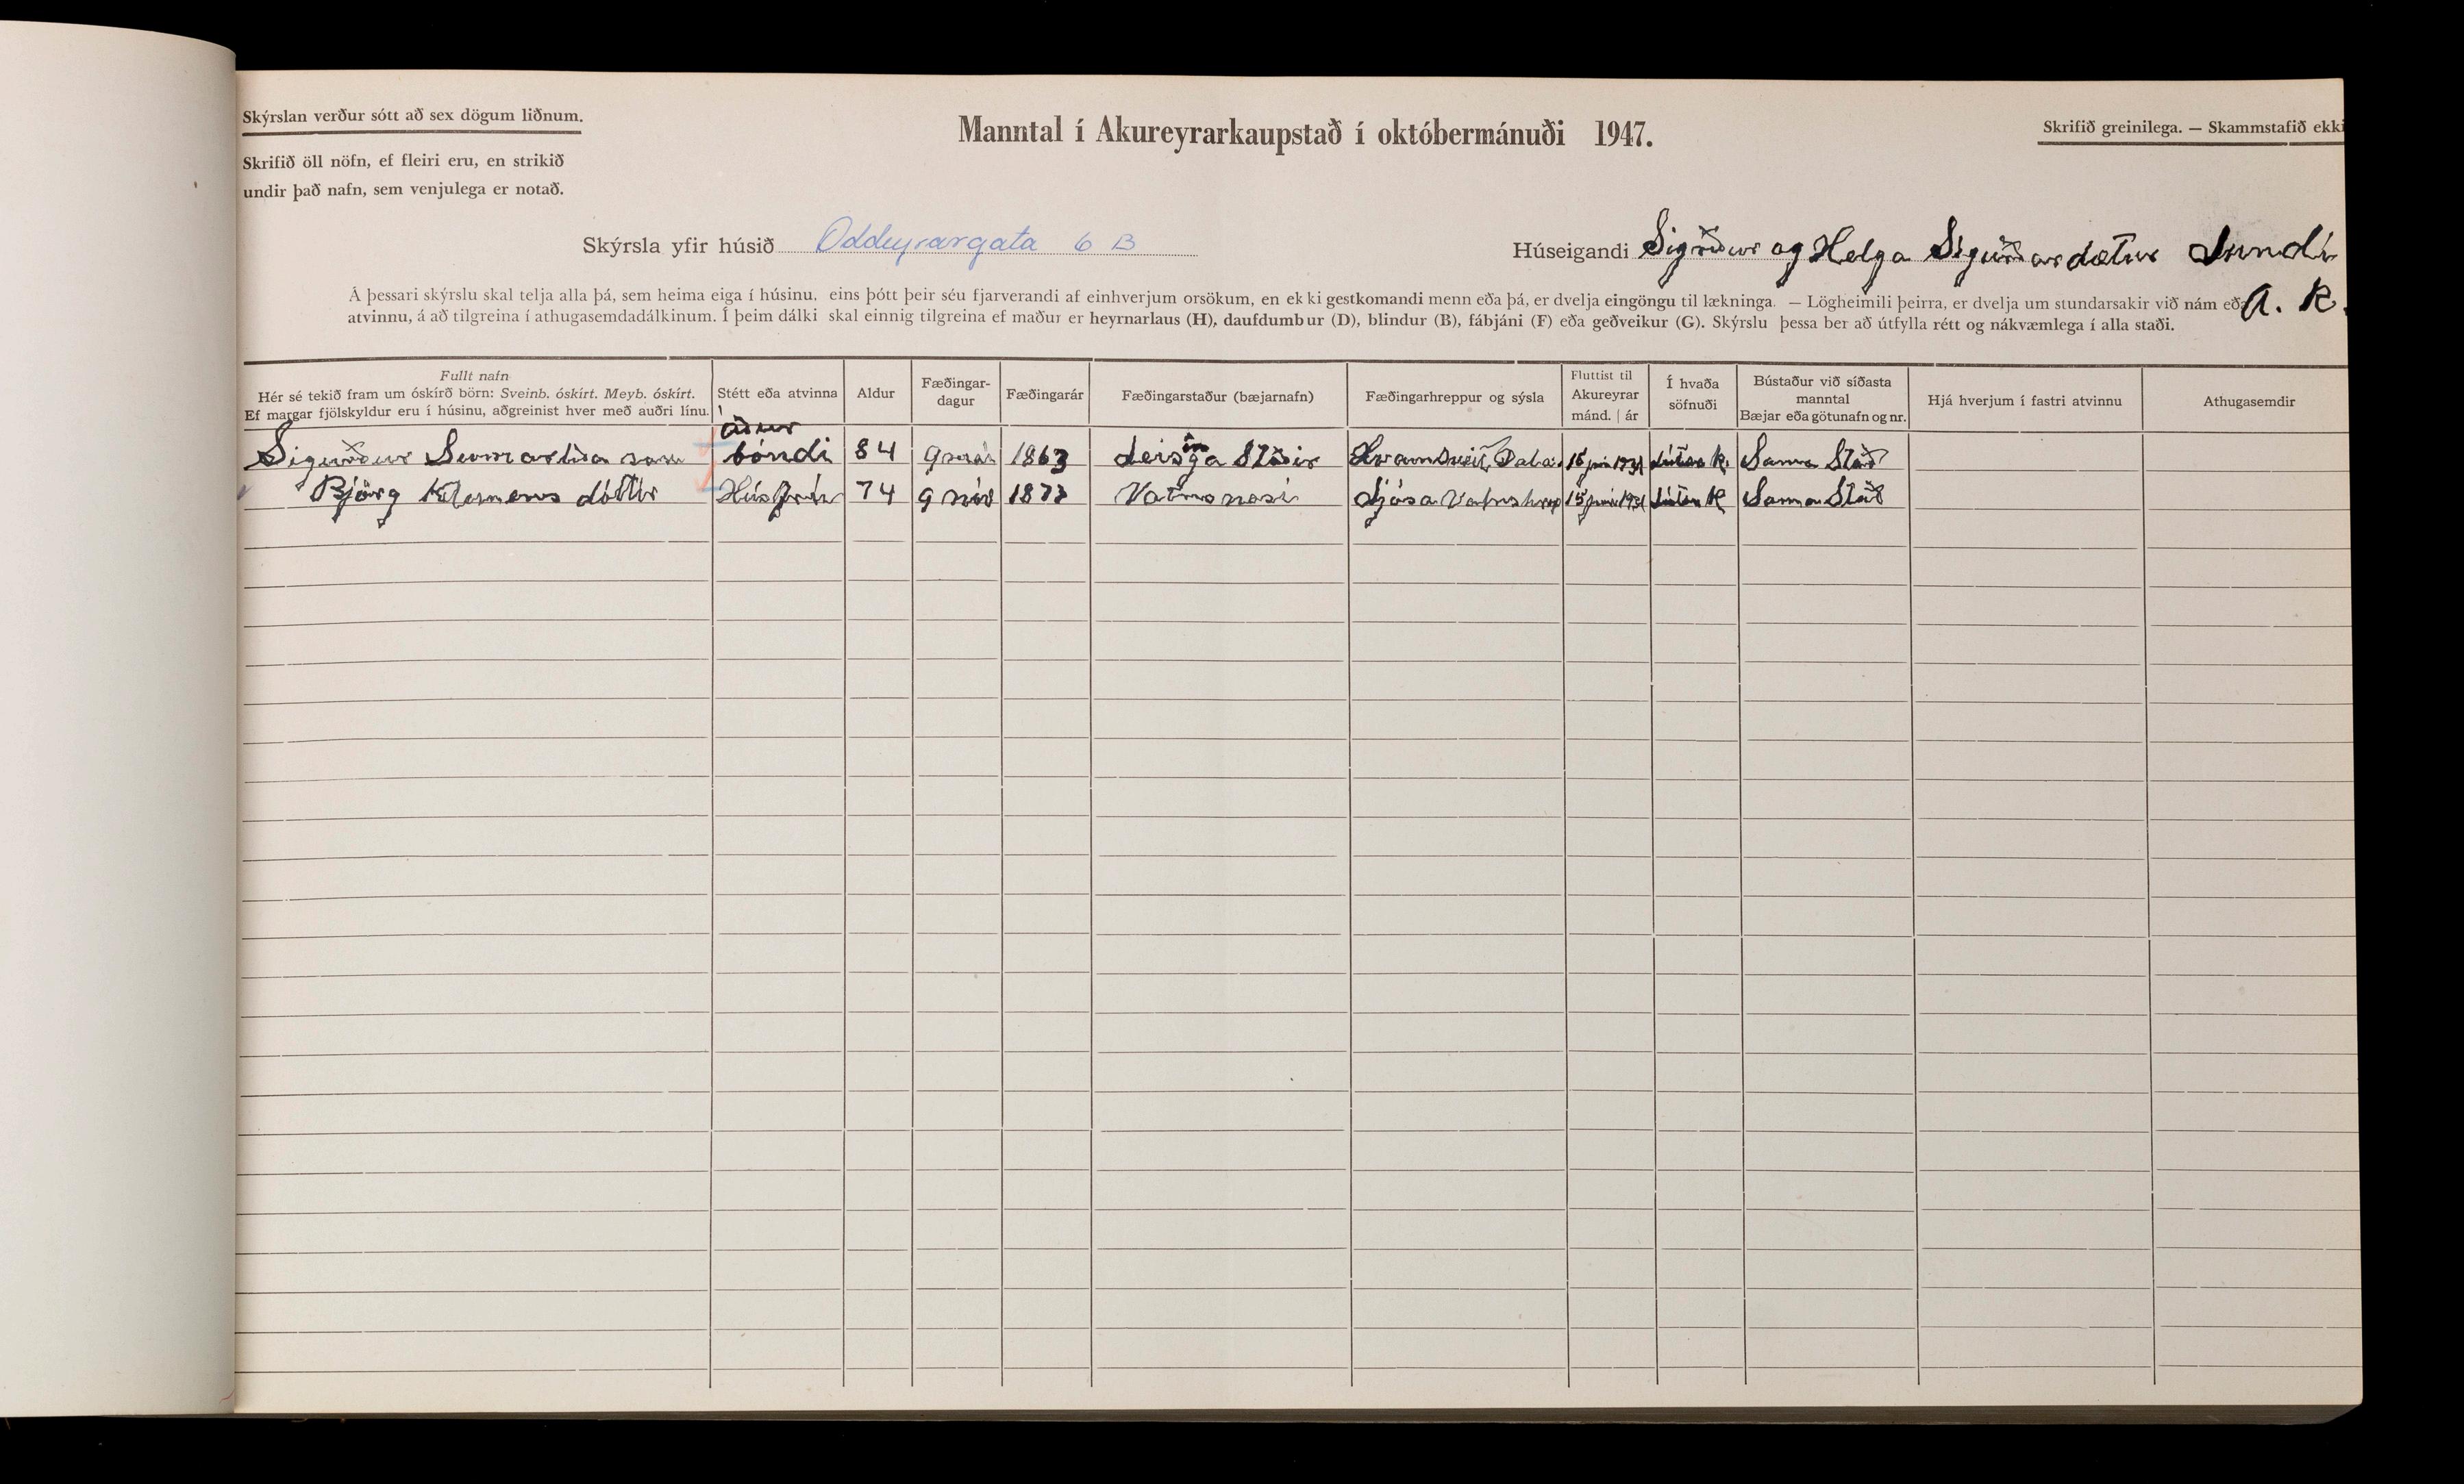 Skýrslan verður sótt að sex dögum liðnum.
Manntal í Akureyrarkaupstað í októbermánuði 1947.
Skrifið greinilega. — Skammstafið ekki
Skrifið öll nöfn, ef fleiri eru, en strikið
undir það nafn, sem venjulega er notað.
Skýrsla yfir húsið Oddeyrargata 6 B
Húseigandi Sigríður og Helga Sigurðardætur Lundi
A. K.
Á þessari skýrslu skal telja alla þá, sem heima eiga í húsinu, eins þótt þeir séu fjarverandi af einhverjum orsökum, en ekki gestkomandi menn eða þá, er dvelja eingöngu til lækninga. — Lögheimili þeirra, er dvelja um stundarsakir við nám eða
atvinnu, á að tilgreina í athugasemdadálkinum. Í þeim dálki skal einnig tilgreina ef maður er heyrnarlaus (H), daufdumbur (D), blindur (B), fábjáni (F) eða geðveikur (G). Skýrslu þessa ber að útfylla rétt og nákvæmlega í alla staði.
Fullt nafn
Hér sé tekið fram um óskírð börn: Sveinb. óskírt. Meyb. óskírt.
Ef margar fjölskyldur eru í húsinu, aðgreinist hver með auðri línu.
Stétt eða atvinna
Aldur
Fæðingar-
dagur
Fæðingarár
Fæðingarstaður (bæjarnafn)
Fæðingarhreppur og sýsla
Fluttist til
Akureyrar
mánd. | ár
Í hvaða
söfnuði
Bústaður við síðasta
manntal
Bæjar eða götunafn og nr.
Hjá hverjum í fastri atvinnu
Athugasemdir
áður
Sigurður Sumarliða son bóndi 84 9 1863 Hvamsveit Dala. 15 júní 1931 Lúters K. Sama Stað
Björg Klemens dóttir Húsfrú 74 9 nóv 1873 Vatnsnesi 15 júní 1931 Lúters K Sama Stað